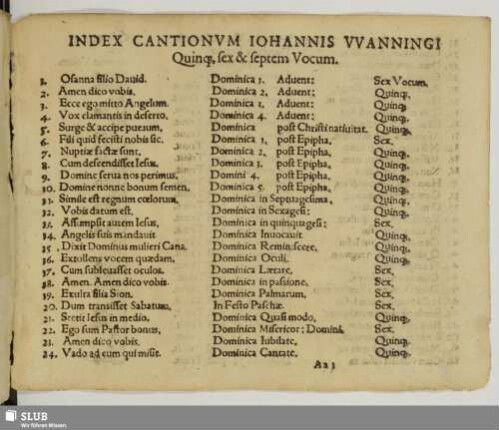 INDEX CANTIONVM IOHANNIS VVANNINGI
Quinq;, sex & septem Vocum.
1. Osanna filio Dauid. Dominica 1. Aduent: Sex Vocum.
2. Amen dico vobis. Dominica 2. Aduent: Quinq;.
3. Ecce ego mitto Angelum. Dominica 1. Aduent: Quinq;.
4. Vox clamantis in deserto. Dominica 4. Aduent: Quinq;.
5. Surge & accipe puerum, Dominica post Christi natiuitat. Quinq;.
6. Fili quid fecisti nobis sic. Dominica 1. post Epipha, Sex.
7. Nuptiæ factæ sunt, Dominica 2. post Epipha, Quinq;.
8. Cum descendisset Iesus. Dominica 3. post Epipha, Quinq;.
9. Domine serua nos perimus. Domini 4. post Epipha, Quinq;.
10. Domine nonne bonum semen. Dominica 5. post Epipha, Quinq;.
11. Simile est regnum cœlorum, Dominica in Septuagesima, Quinq;.
12. Vobis datum est. Dominica in Sexagesi: Quinq;.
13. Assumpsit autem Iesus, Dominica in quinquagesi: Sex.
14. Angelis suis mandauit Dominica Inuocauit Quinq;.
15. Dixit Dominus mulieri Cana. Dominica Reminiscere, Quinq;.
16. Extollens vocem quædam, Dominica Oculi. Quinq;.
17. Cum subleuasset oculos. Dominica Lætare, Sex.
18. Amen. Amen dico vobis. Dominica in passione. Sex.
19. Exulta filia Sion. Dominica Palmarum, Sex.
20. Dum transisset Sabatum, In Festo Paschæ. Sex.
21. Stetit Iesus in medio. Dominica Quasi modo, Quinq;.
22. Ego sum Pastor bonus, Dominica Misericor: Domini, Sex.
23. Amen dico vobis. Dominica Iubilate, Quinq;.
24. Vado ad eum qui misit. Dominica Cantate, Quinq;.
Aa3
SLUB
Wir führen Wissen.